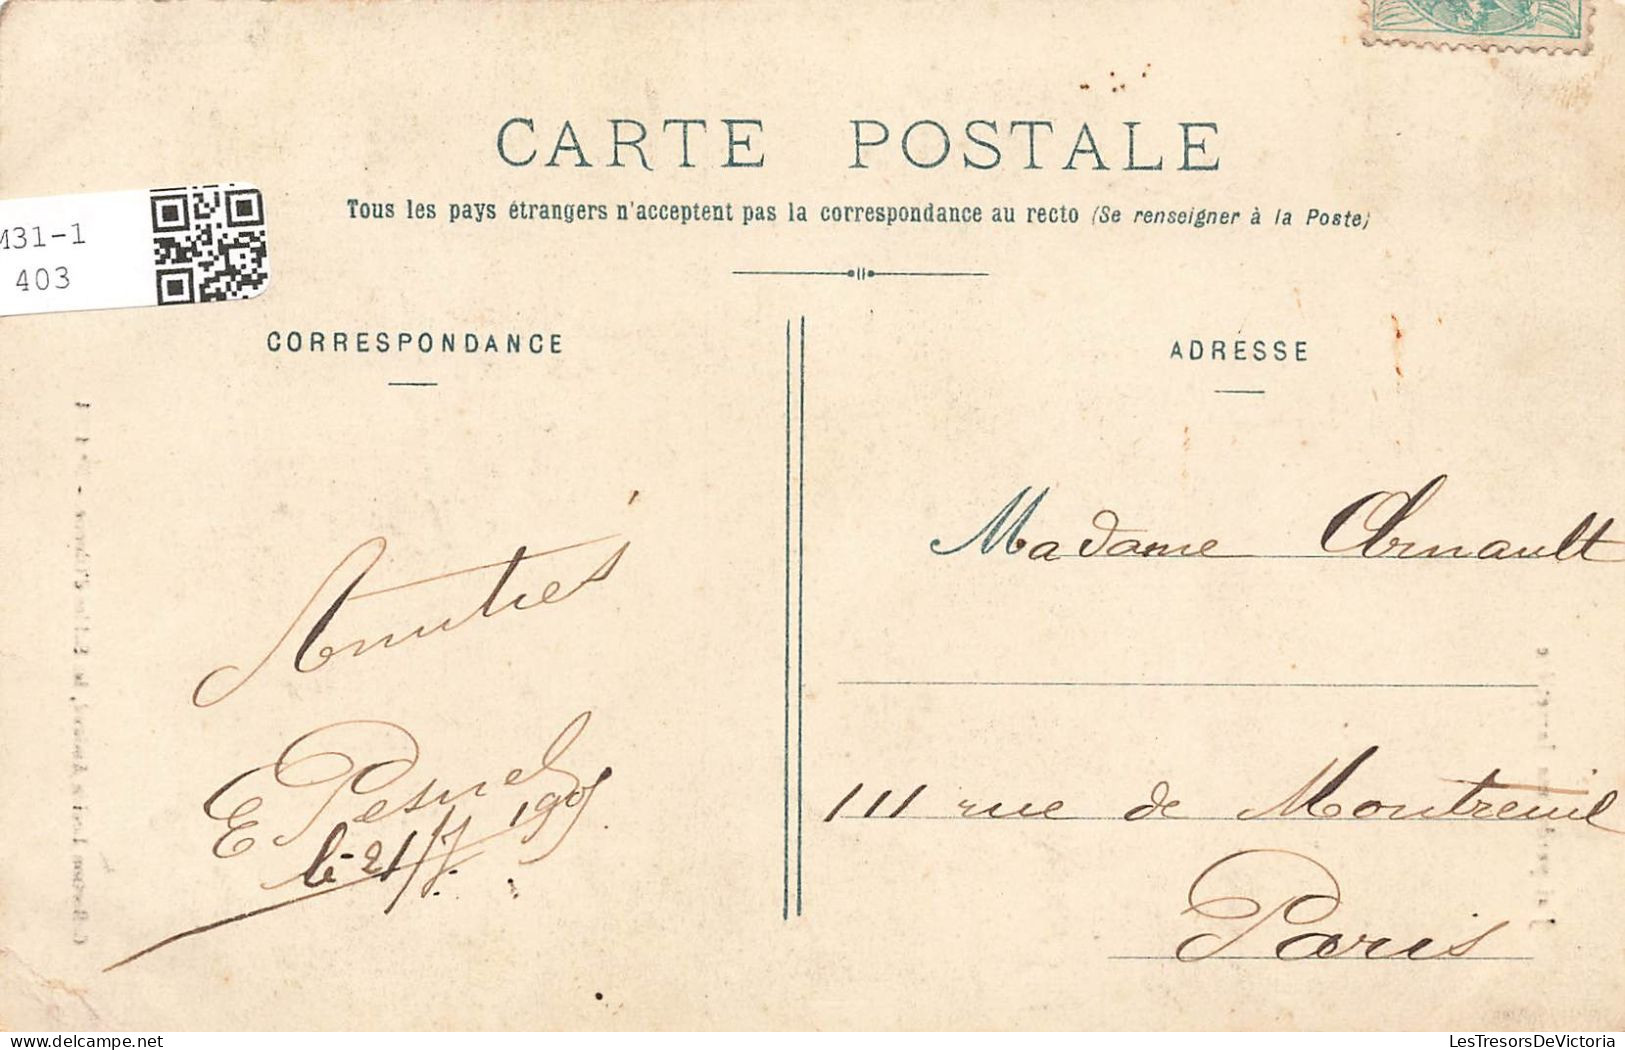 CARTE POSTALE
Tous les pays étrangers n'acceptent pas la correspondance au recto (Se renseigner à la Poste)
M31-1
403
CORRESPONDANCE
ADRESSE
Amitiés
E Pesnel
le 21/7 1905
Madame Arnault
111 rue de Montreuil
Paris
LesTresorsDeVictoria